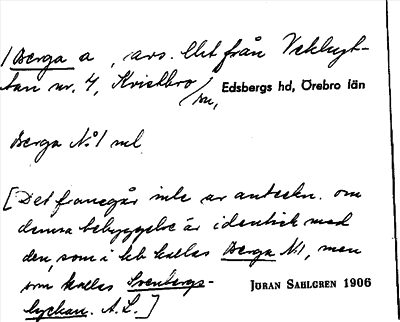 / Berga a, avs. lht från Vekhyt-
tan nr. 4, Kvistbro sn,
Edsbergs hd, Örebro län
Berga No 1 ml
[Det framgår inte av anteckn. om
denna bebyggelse är identisk med
den, som i kb kallas Berga N:1, men
som kallas Svenbergs-
lyckan. A.L.]
JÖRAN SAHLGREN 1906